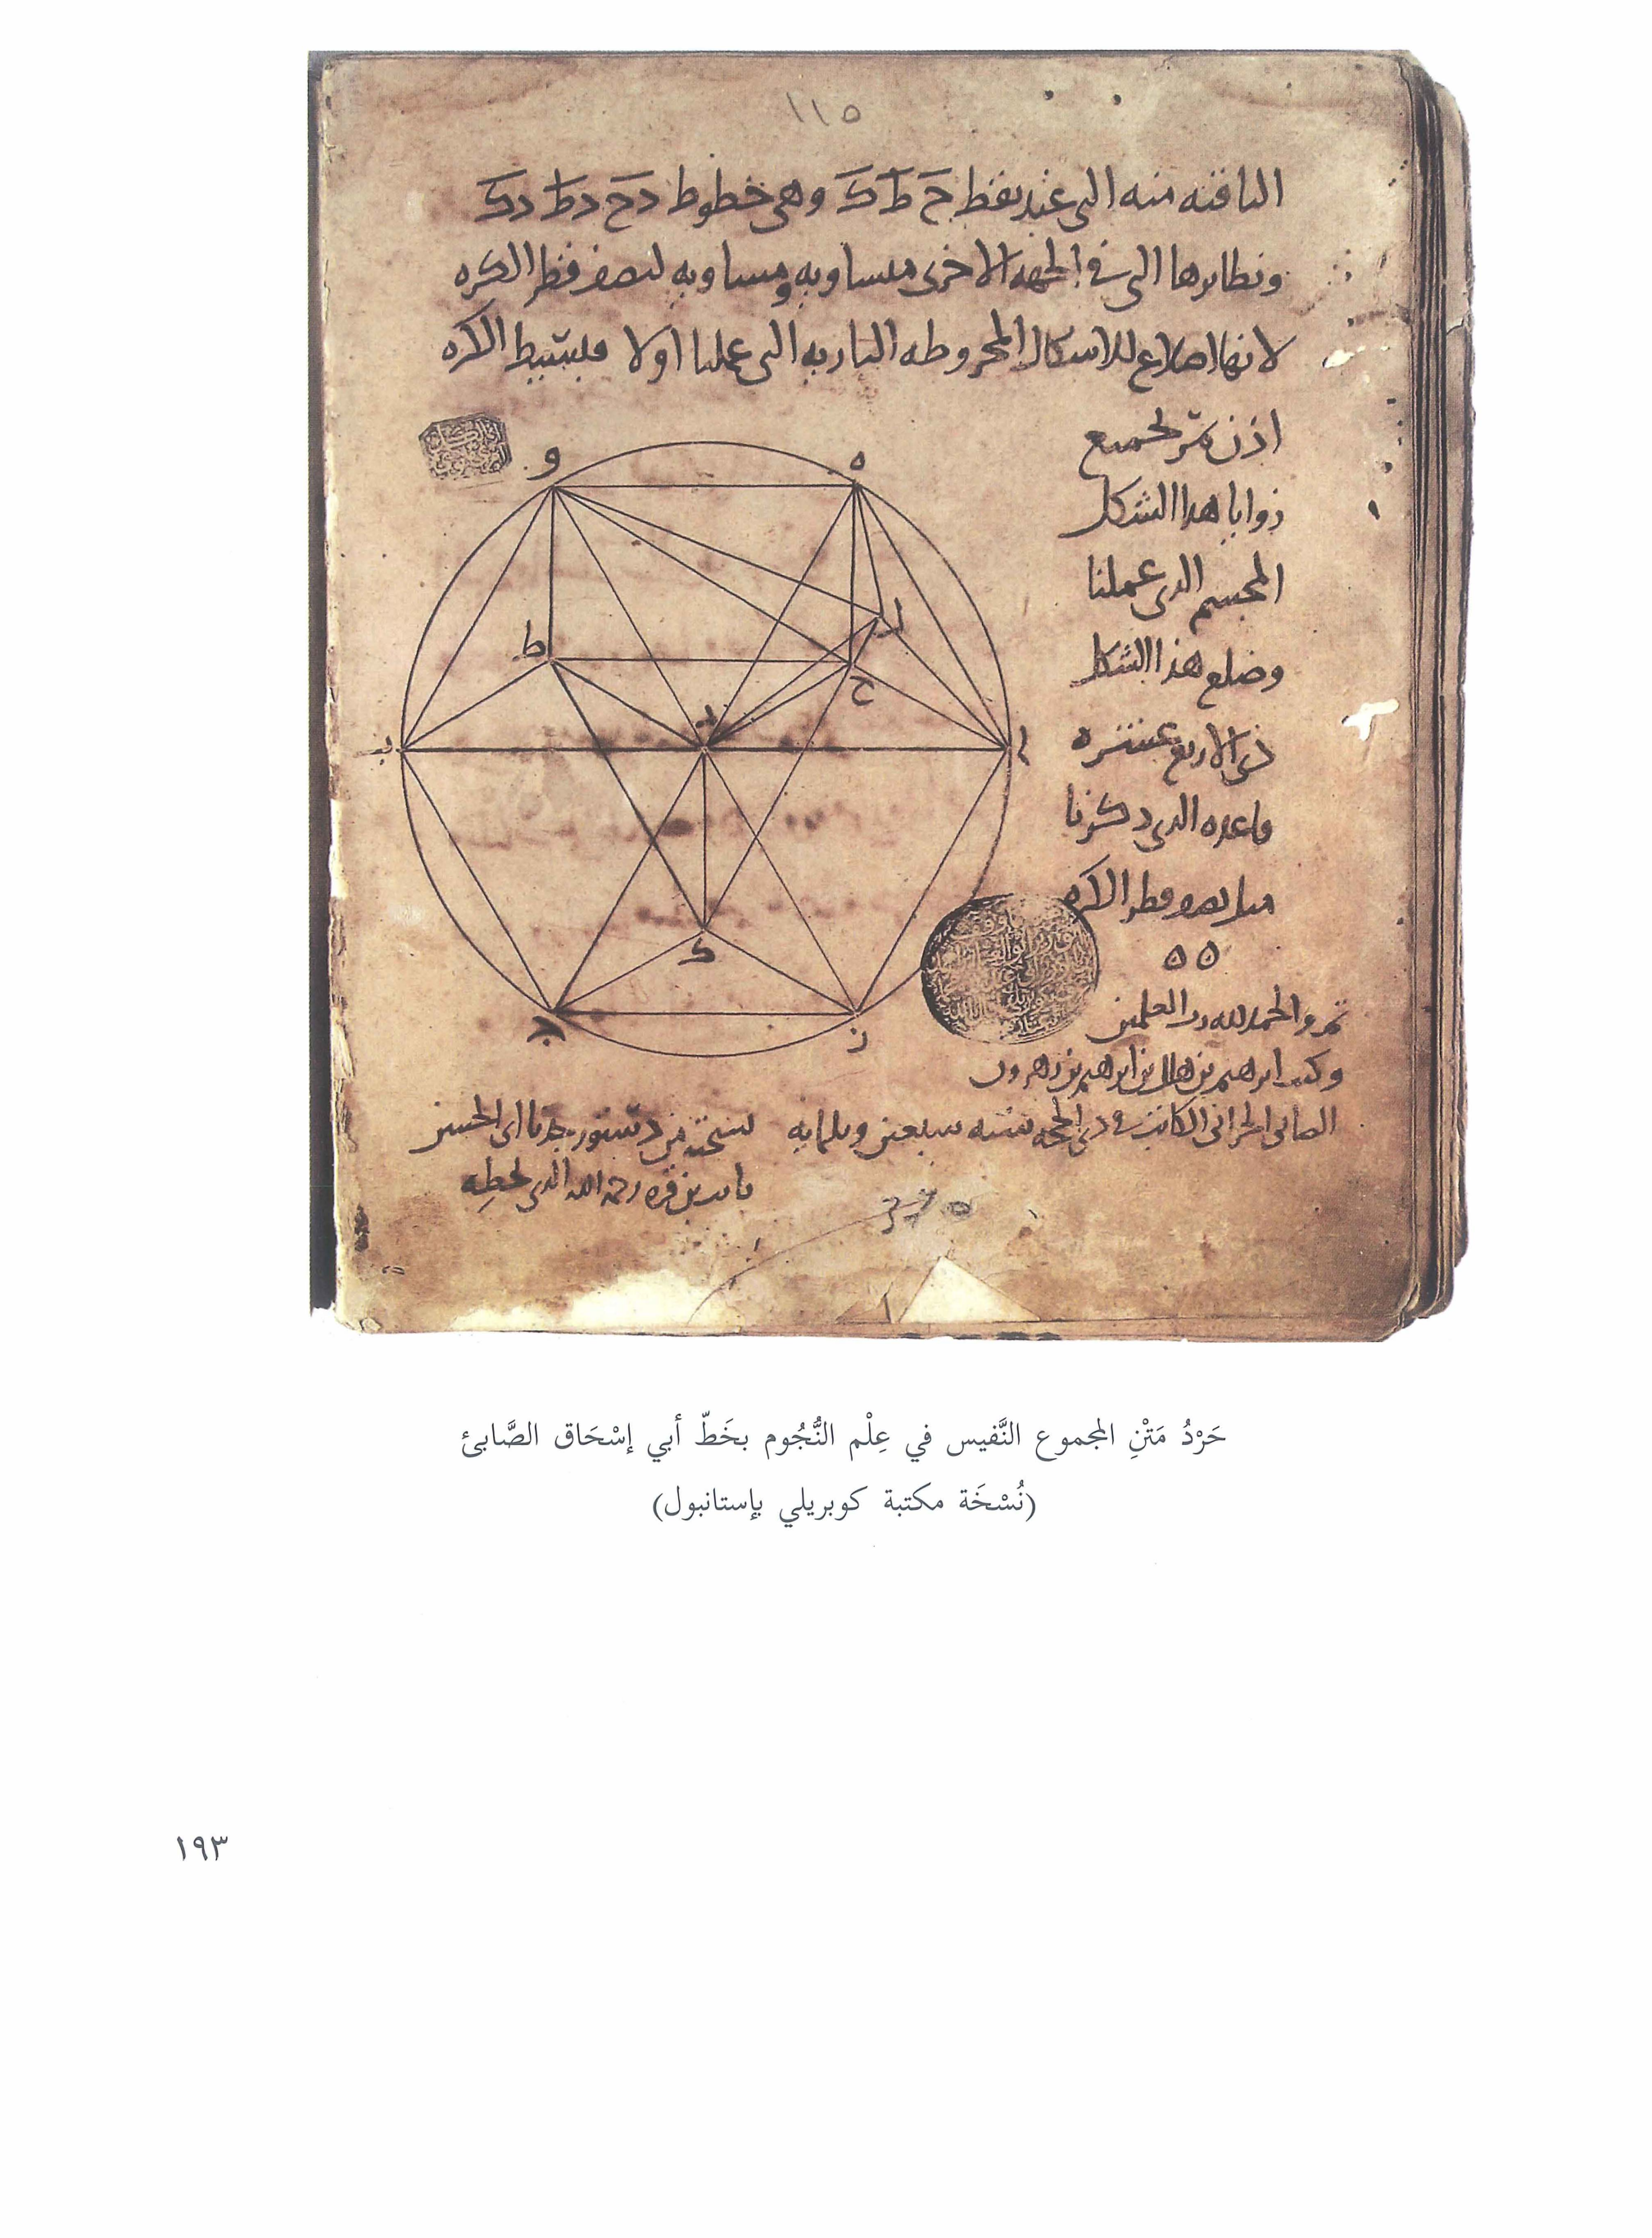 ١١٥
الباقيه منه التى عند نقط ح ط ك وهى خطوط دح دط دك
ونظايرها التى فى الجهه الاخرى متساويه ومساويه لنصف قطر الكره
لانها اضلاع للاشكال المخروطه الناريه التى عملنا اولا فبسيط الكره
اذن تمر بجميع
زوايا هذا الشكل
المجسم الذى عملنا
وضلع هذا الشكل
ذى الاربع عشره
قاعده الذى ذكرنا
مثل نصف قطر الكره
ه ه
و
ه
ل
ط
ح
د
ب
ا
ك
ج
ز
تم والحمد لله رب العلمين
وكتب ابرهيم بن هلال بن ابرهيم بن زهرون
الصابى الحرانى الكاتب فى ذى الحجه سنه سبعين وثلثمايه
نسخته من دستور جدنا ابى الحسن
ثابت بن قره رحمه الله الذى بخطه
حَرْدُ مَتْنِ المجموع النَّفيس في عِلْم النُّجُوم بخَطّ أبي إسْحَاق الصَّابئ
(نُسْخَة مكتبة كوبريلي بإستانبول)
١٩٣